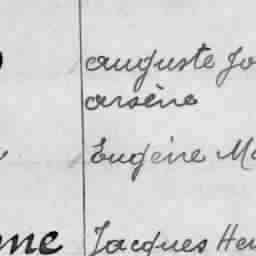 auguste Jo
arsène
Eugène Ma
nne Jacques Hen